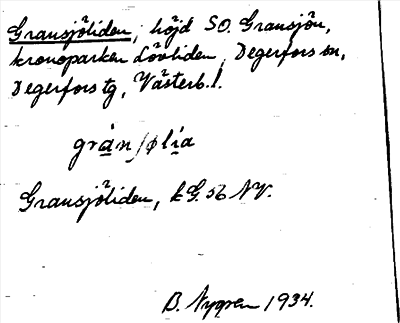 Gransjöliden, höjd SO. Gransjön,
kronoparken Lövliden, Degerfors sn,
Degerfors tg, Västerb. l.
gràn/ølìa
Gransjöliden, kG. 56 NV.
B. Nygren 1934.